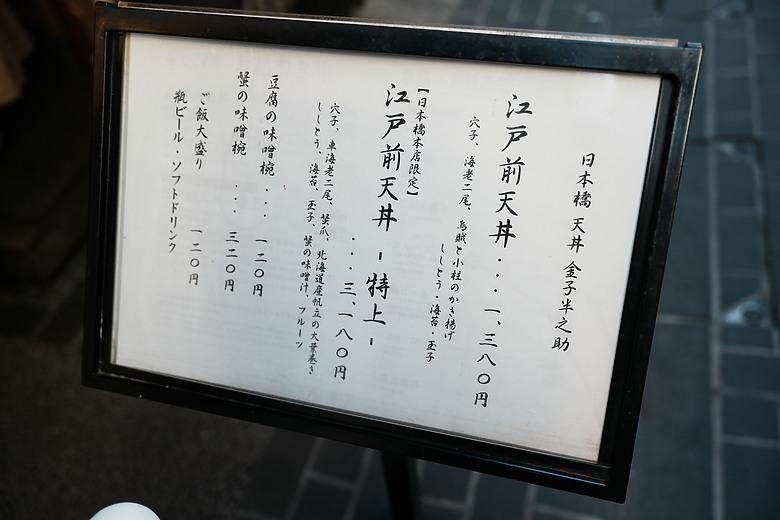 日本橋 天丼 金子半之助
江戸前天丼・・・一、三八〇円
穴子、海老二尾、烏賊と小柱のかき揚げ
ししとう・海苔・玉子
【日本橋本店限定】
江戸前天丼 - 特上 -
・・・三、一八〇円
穴子、車海老二尾、蟹爪、北海道産帆立の大葉巻き
ししとう、海苔、玉子、蟹の味噌汁、フルーツ
豆腐の味噌椀・・・一二〇円
蟹の味噌椀・・・三二〇円
ご飯大盛り 一二〇円
瓶ビール・ソフトドリンク